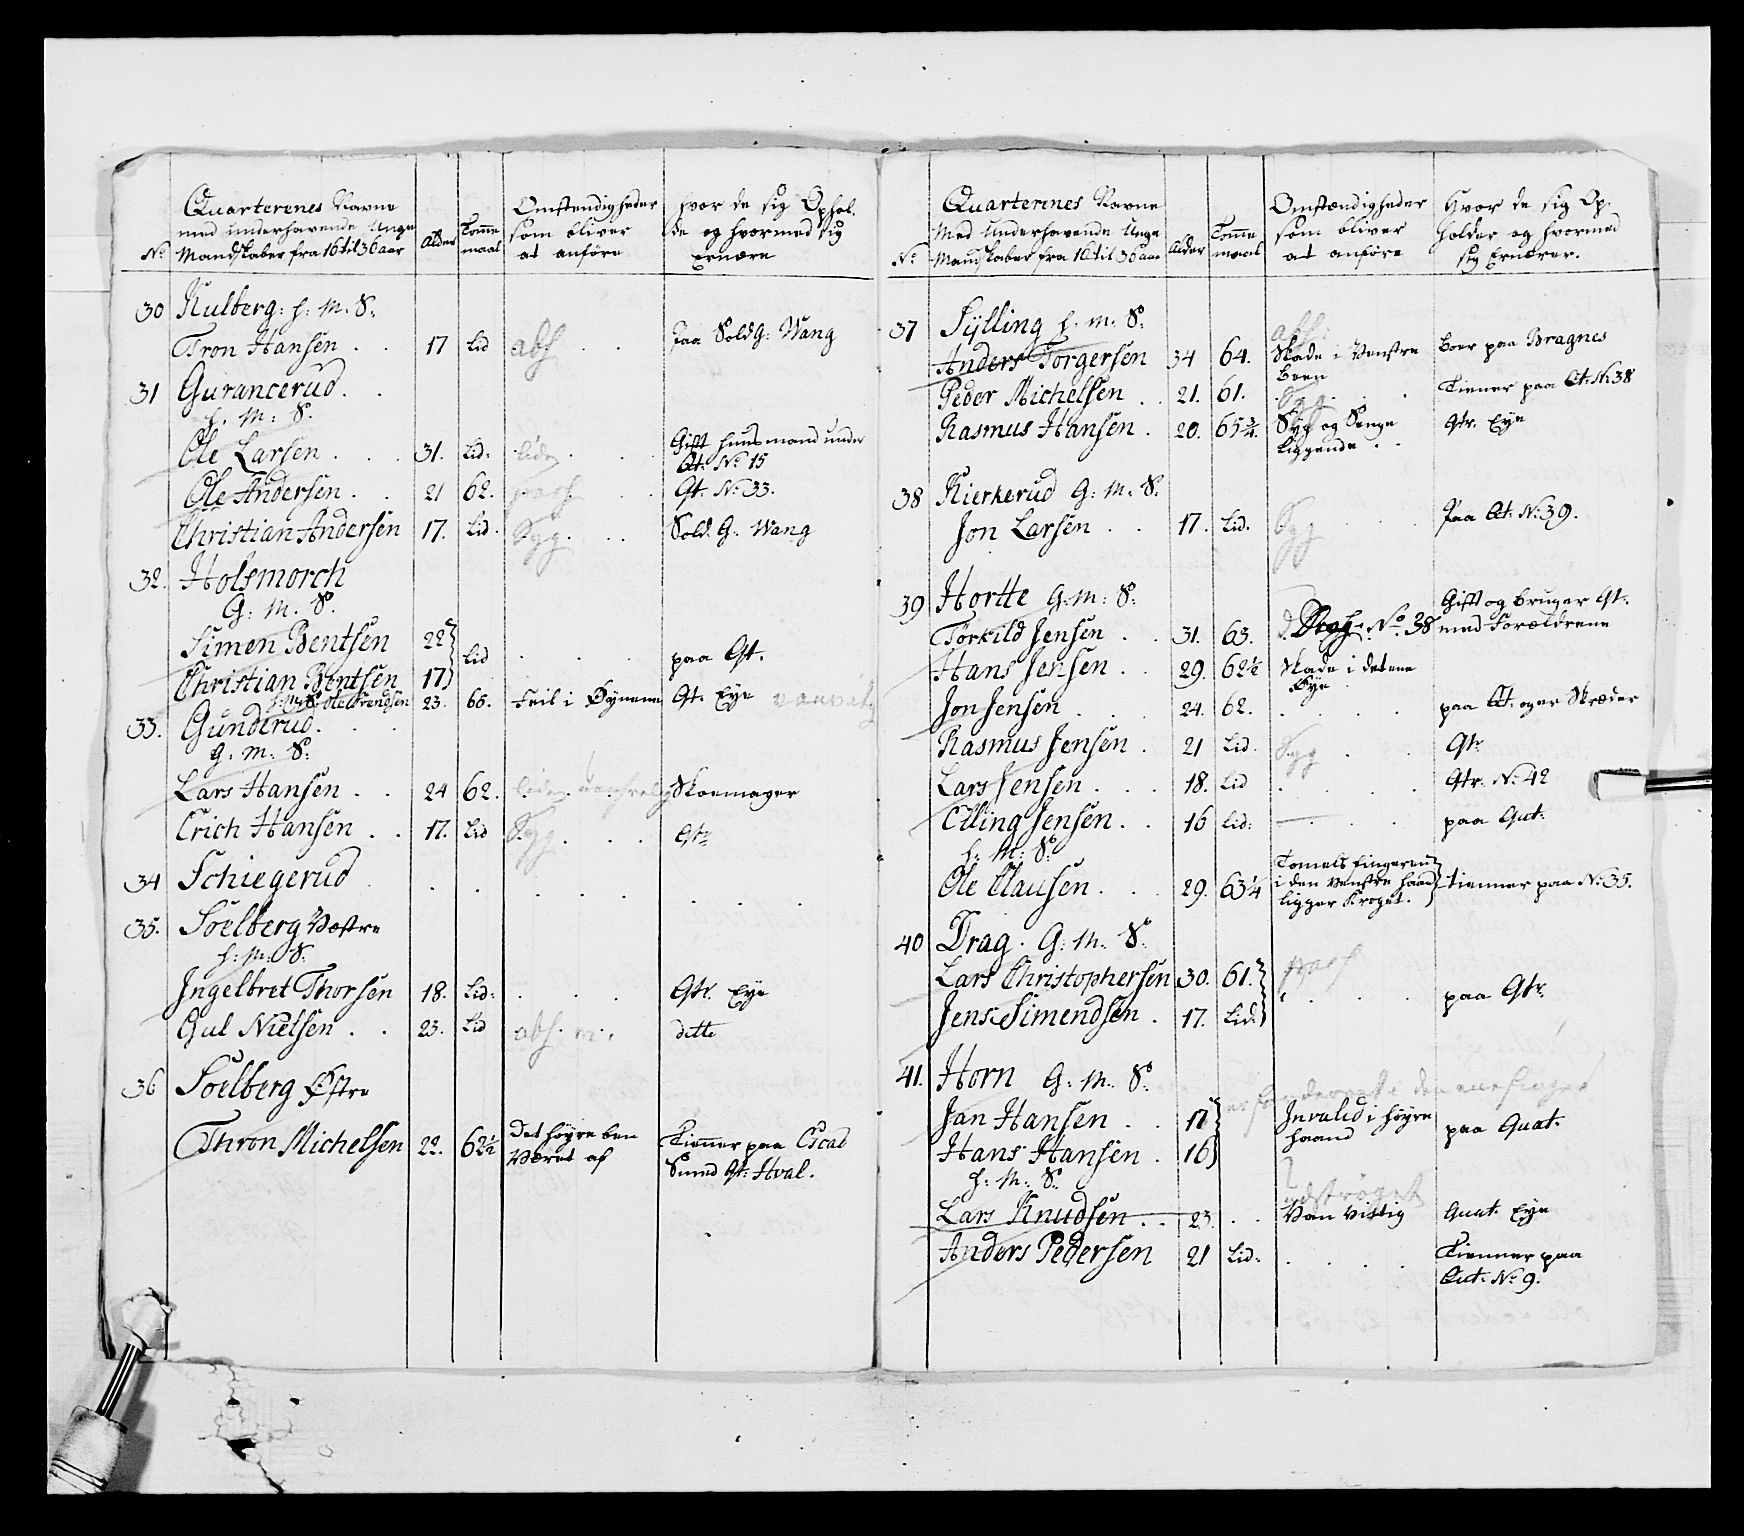 Quarterenes Navne
med underhavende Unge
No Mandskaber fra 16 til 36 aar
Alder
Tomme maal
Omstendigheder
som bliver
at anføre
hvor de sig Ophol-
de og hvormed sig
Ernære
30 Kulberg: H: M: S:
Tron Hansen . . 17 Lid abs . paa Soldg: Wang
31 Gurancerud . .
H: M: S:
Ole Larsen . . . 31. Lid: liden . . Gift huusmand under
Qt: No 15
Ole Andersen . . 21 62. pass . . Qt. No: 33.
Christian Andersen 17. Lid. Syg . . . Sold. G. Wang
32. Holsmorch
G: M: S:
Simen Bentsen 22
Lid . . . paa Qt.
Christian Bentsen 17
H: M: S: Ole Svendsen 23. 66. Feil i Øynene Qt. Eye vanvitg
33. Gunderud . . .
G: M: S:
Lars Hansen . . 24 62. liden Skoemager
Erich Hansen . . 17. Lid Syg . . . Qtr
34 Schiegerud . . . . . . . . .
35. Soelberg Væstre
H: M: S:
Ingelbret Thorsen 18. Lid: . . . Qtr. Eye
Gul Nielsen . . 23. Lid abs. m. dette
36 Soelberg Østre
Thron Michelsen 22. 62½ Det høyre ben
Været af
Tienner paa
Smed Qt: Hval.
Quarterenes Navne
Med Underhavende Unge
No Mandskaber fra 16 til 36 aar
Alder
Tomme maal
Omstændigheder
som bliver
at anføre
Hvor de sig Op-
holder og hvormed
sig Ernærer.
37 Sylling H: M: S:
abs
Anders Torgersen 34 64. Skade i Venstre
Been
Boer paa Bragnes
Peder Michelsen . . 21. 61. Syg . . Tiener paa Qt: N: 38
Rasmus Hansen . 20. 65¾. Syg og Senge
liggende . .
Qtr. Eye
38 Kierkerud G: M: S:
Jon Larsen . . 17. Lid. Syg . . paa Qt: N: 39.
39 Hortte G: M: S:
Torkild Jensen . . 31. 63. No 38
Gift og bruger Qt.
med Forældrene
Hans Jensen . . 29. 62½ Skade i det ene
Øye
Jon Jensen . . . 24. 62. . . . . paa Qt. og er Skræder
Rasmus Jensen . 21 Lid. Syg . . Qtr
Lars Jensen . . . 18. Lid . . . . Qtr. No: 42
Elling Jensen . . 16 Lid: . . . paa Qut:
H: M: S:
Ole Clausen . . . 29. 63¼ Tomelfingeren
i den Venstre haand
ligger kroget.
tienner paa N: 35.
40 Drag. G: M: S:
Lars Christophersen 30. 61. pass
. . . . paa Qtr.
Jens Simendsen . 17. Lid:
41. Horn G: M: S:
den ene finger
Jan Hansen . . 17 Invalid i høyre
haand
paa Quat.
Hans Hansen . 16
H: M: S:
udstrøget
Lars Knudsen . . 23. . . Van vittig Quat. Eye
Anders Pedersen 21 Lid: . . . . Tienner paa
Qut: No 9.